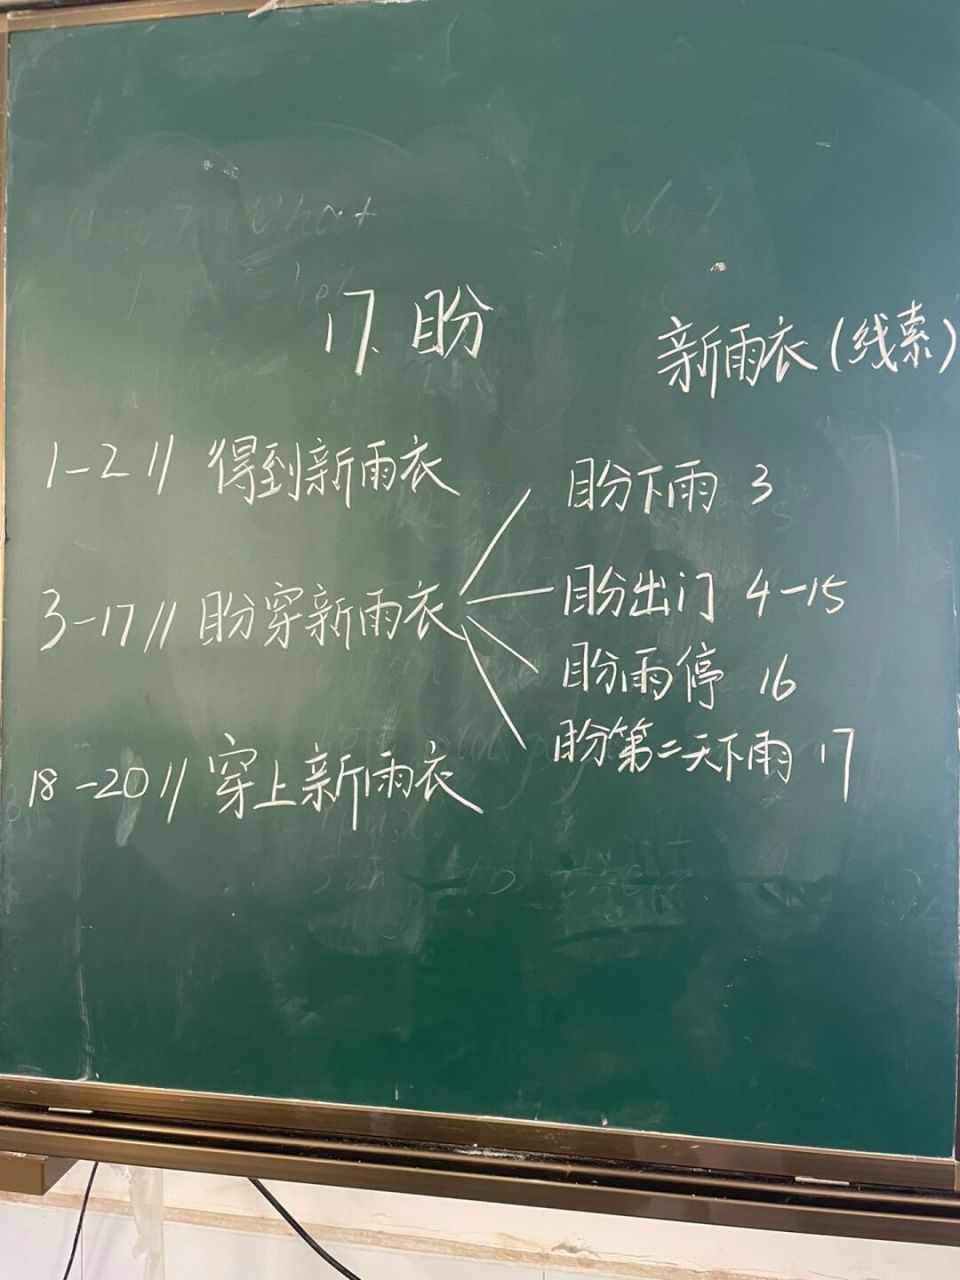 17. 盼
新雨衣(线索)
1-2// 得到新雨衣
3-17// 盼穿新雨衣
盼下雨 3
盼出门 4-15
盼雨停 16
盼第二天下雨 17
18-20// 穿上新雨衣